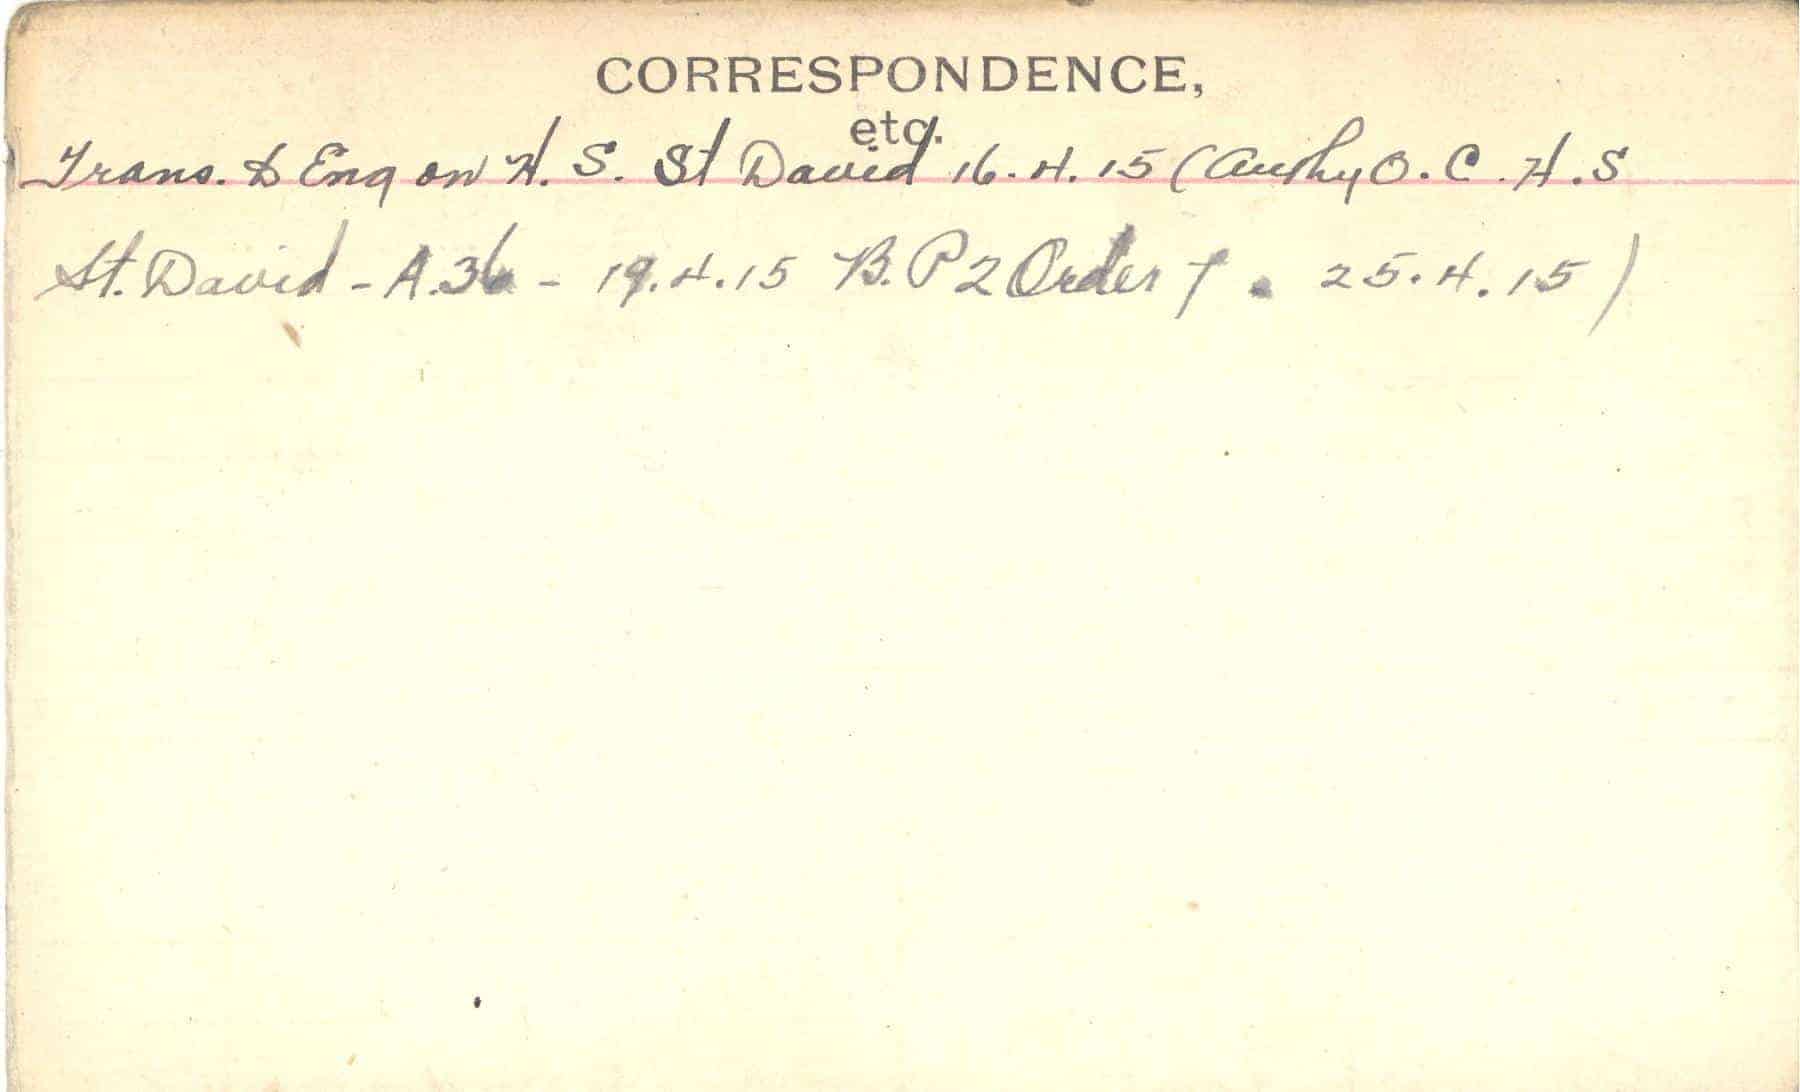 CORRESPONDENCE,
etc.
Trans. to Eng on H. S. St David 16.4.15 (Authy O.C.H.S
St. David - A.36 - 19.4.15 B.P 2 Order 7. 25.4.15)